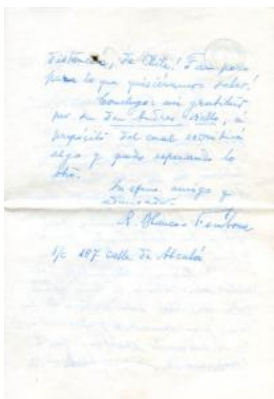 distancia, de Chile! Tan poco
para lo que quisiéramos saber!
Conságole mi gratitud
por su Don Andrés Bello, a
propósito del cual escribiré
algo y quedo esperando lo
otro.
Su afmo. amigo y
admirador.
R. Blanco Fombona
S/c 187 calle de Alcalá